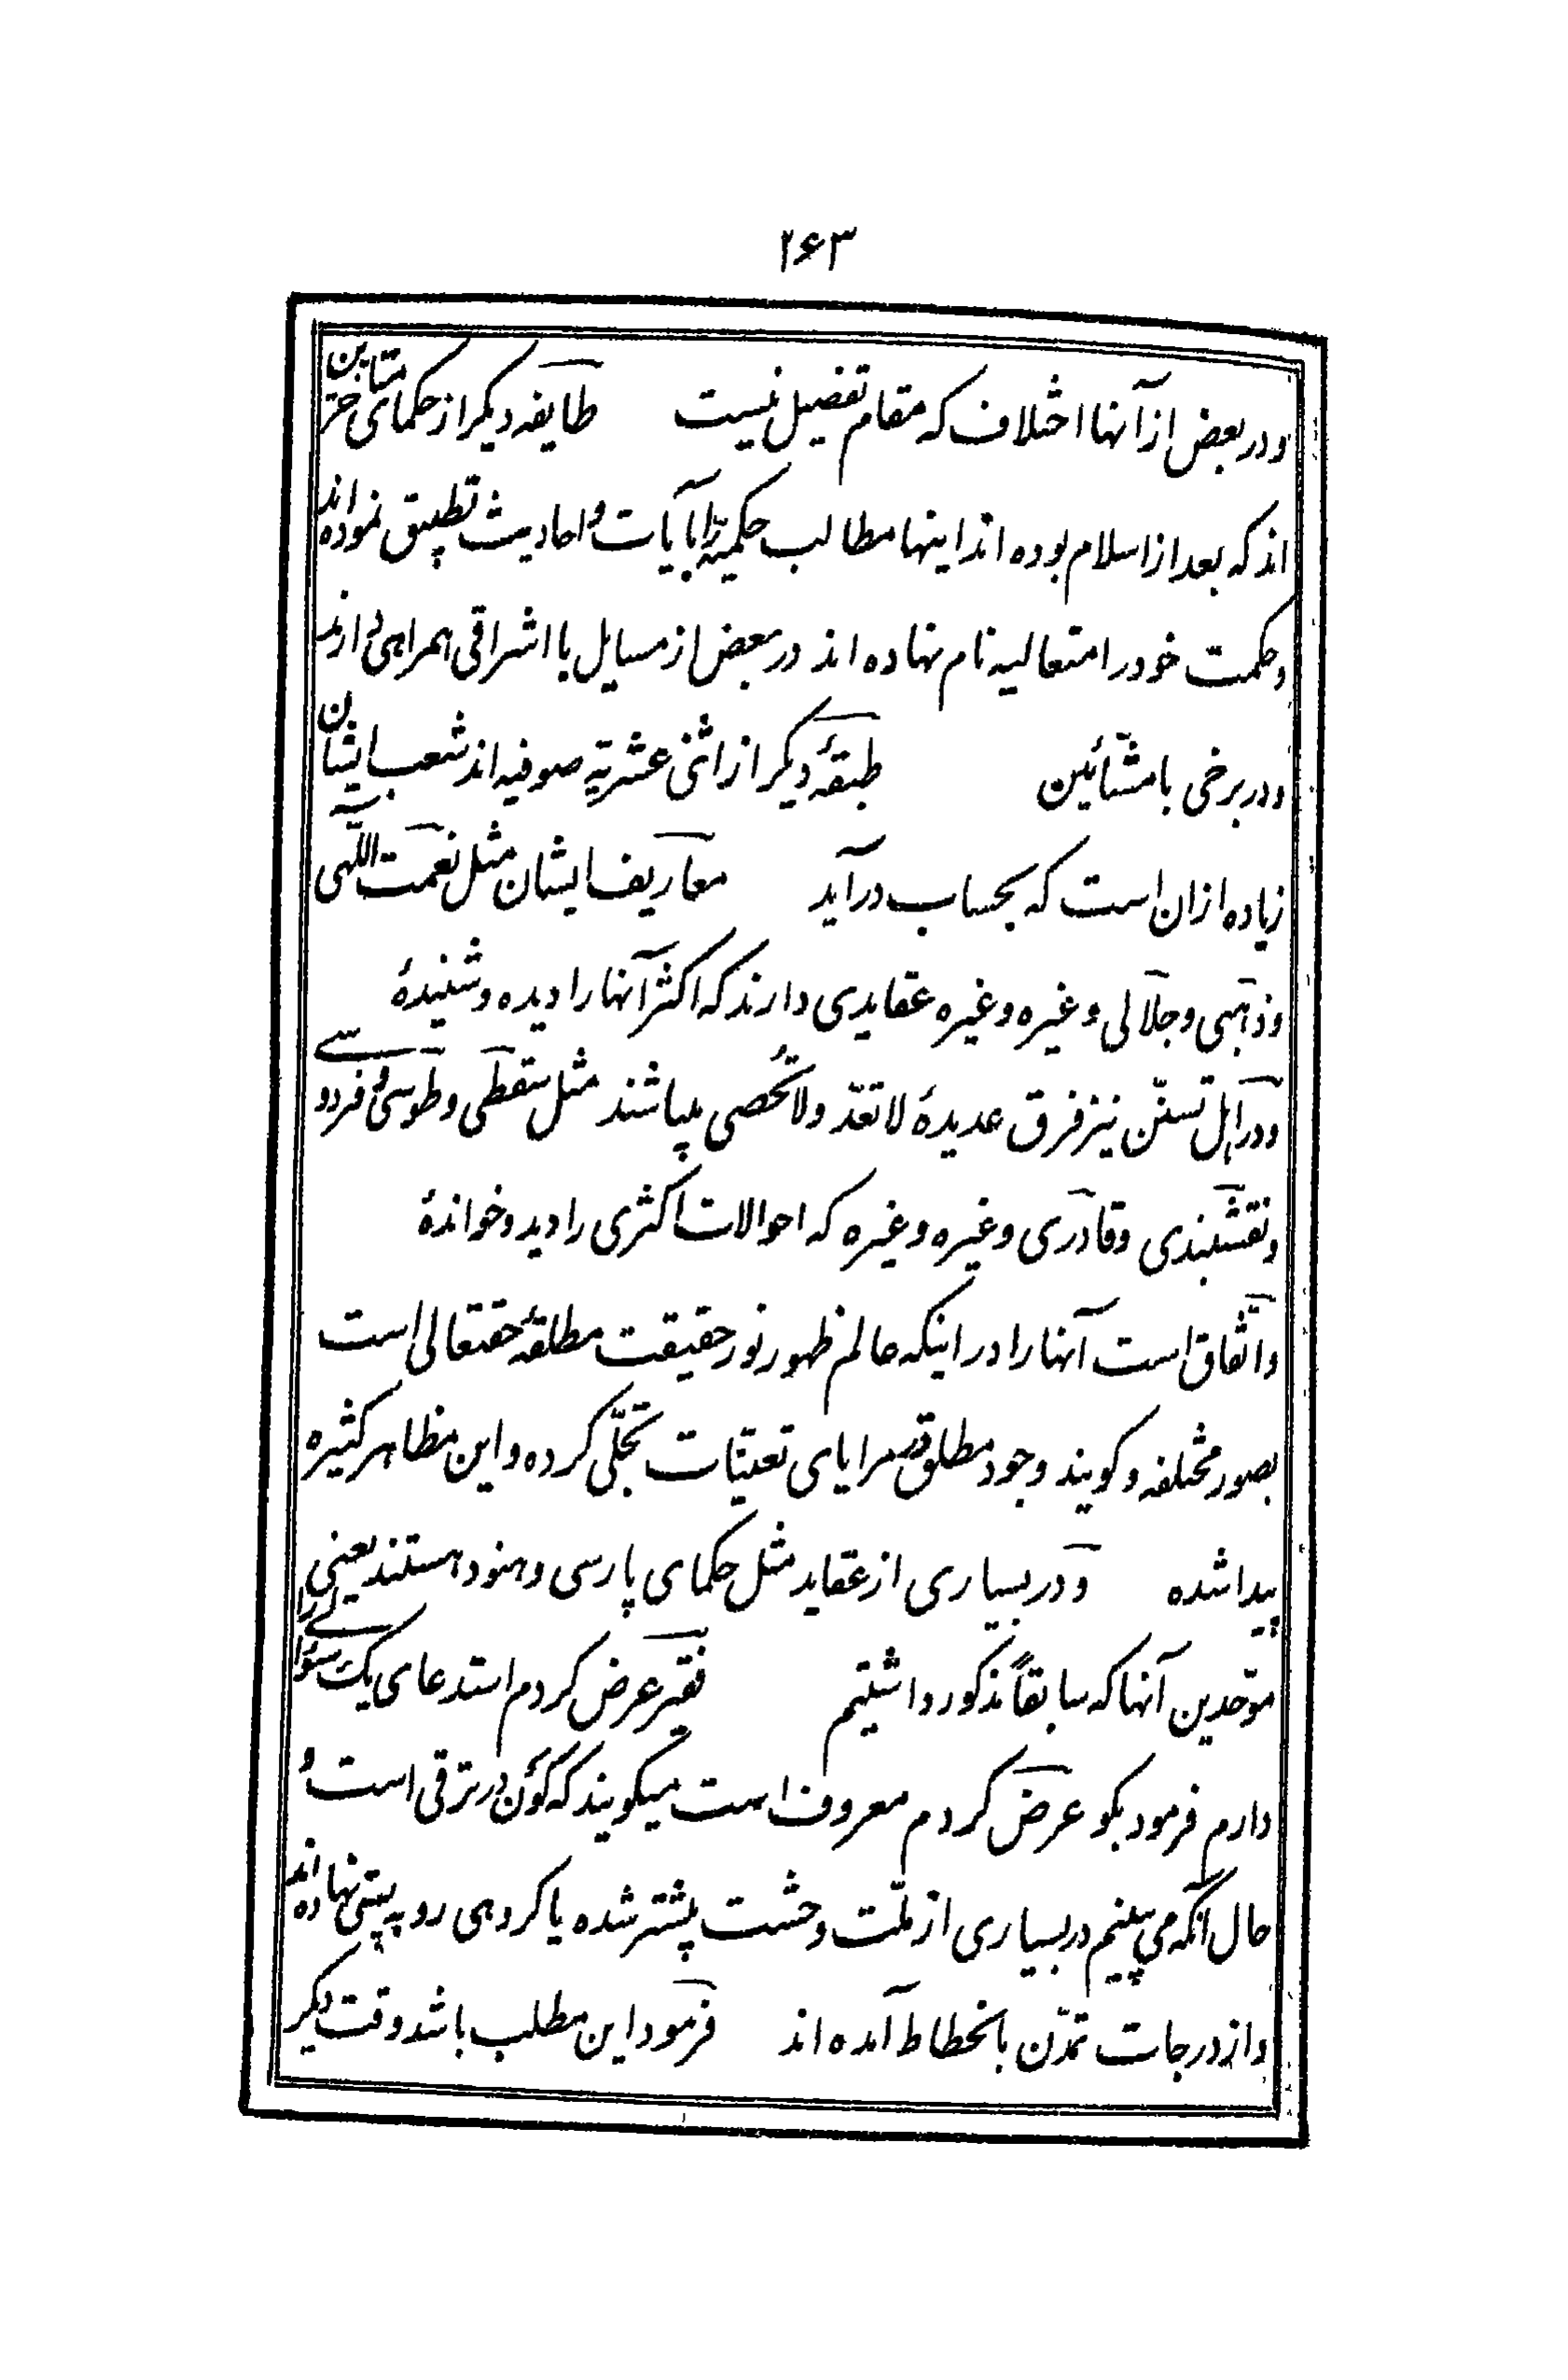 ۲۶۳
و در بعض از آنها اختلاف که مقام تفصیل نیست طایفه دیکر از حکمای متاخرین
اند که بعد از اسلام بوده اند اینها مطالب حکمیّه را با آیات و احادیث تطبیق نموده اند
و حکمت خود را متعالیه نام نهاده اند در بعض از مسایل با اشراقی همراهی دارند
و در برخی با مشّائین طبقهٔ دیکر از اثنی عشریّه صوفیه اند شعب ایشان
زیاده از ان است که بحساب درآید معاریف ایشان مثل نعمت اللّهی
و ذهبی و جلالی و غیره و غیره عقایدی دارند که اکثر آنها را دیده و شنیدهٔ
و در اهل تسنّن نیز فرق عدیدهٔ لا تعدّ ولا تحصی میباشند مثل سقطی و طوسی و فردوسی
و نقشبندی و قادری و غیره و غیره که احوالات اکثری را دید و خواندهٔ
و اتّفاق است آنها را در اینکه عالم ظهور نور حقیقت مطلقهٔ حقتعالی است
بصور مختلفه و کویند وجود مطلق در مرایای تعیّنات تجلّی کرده و این مظاهر کثیره
پیدا شده و در بسیاری از عقاید مثل حکمای پارسی و هنود هستند یعنی
موّحدین آنها که سابقاً مذکور داشتیم فقیر عرض کردم استدعای یک سؤالی را
دارم فرمود بکو عرض کردم معروف است میکویند که کَوْن در ترقی است و
حال آنکه می بینیم در بسیاری از ملّت وحشت بیشتر شده یا کروهی رو به پستی نهاده اند
و از درجات تمدّن بانحطاط آمده اند فرمود این مطلب باشد وقت دیکر